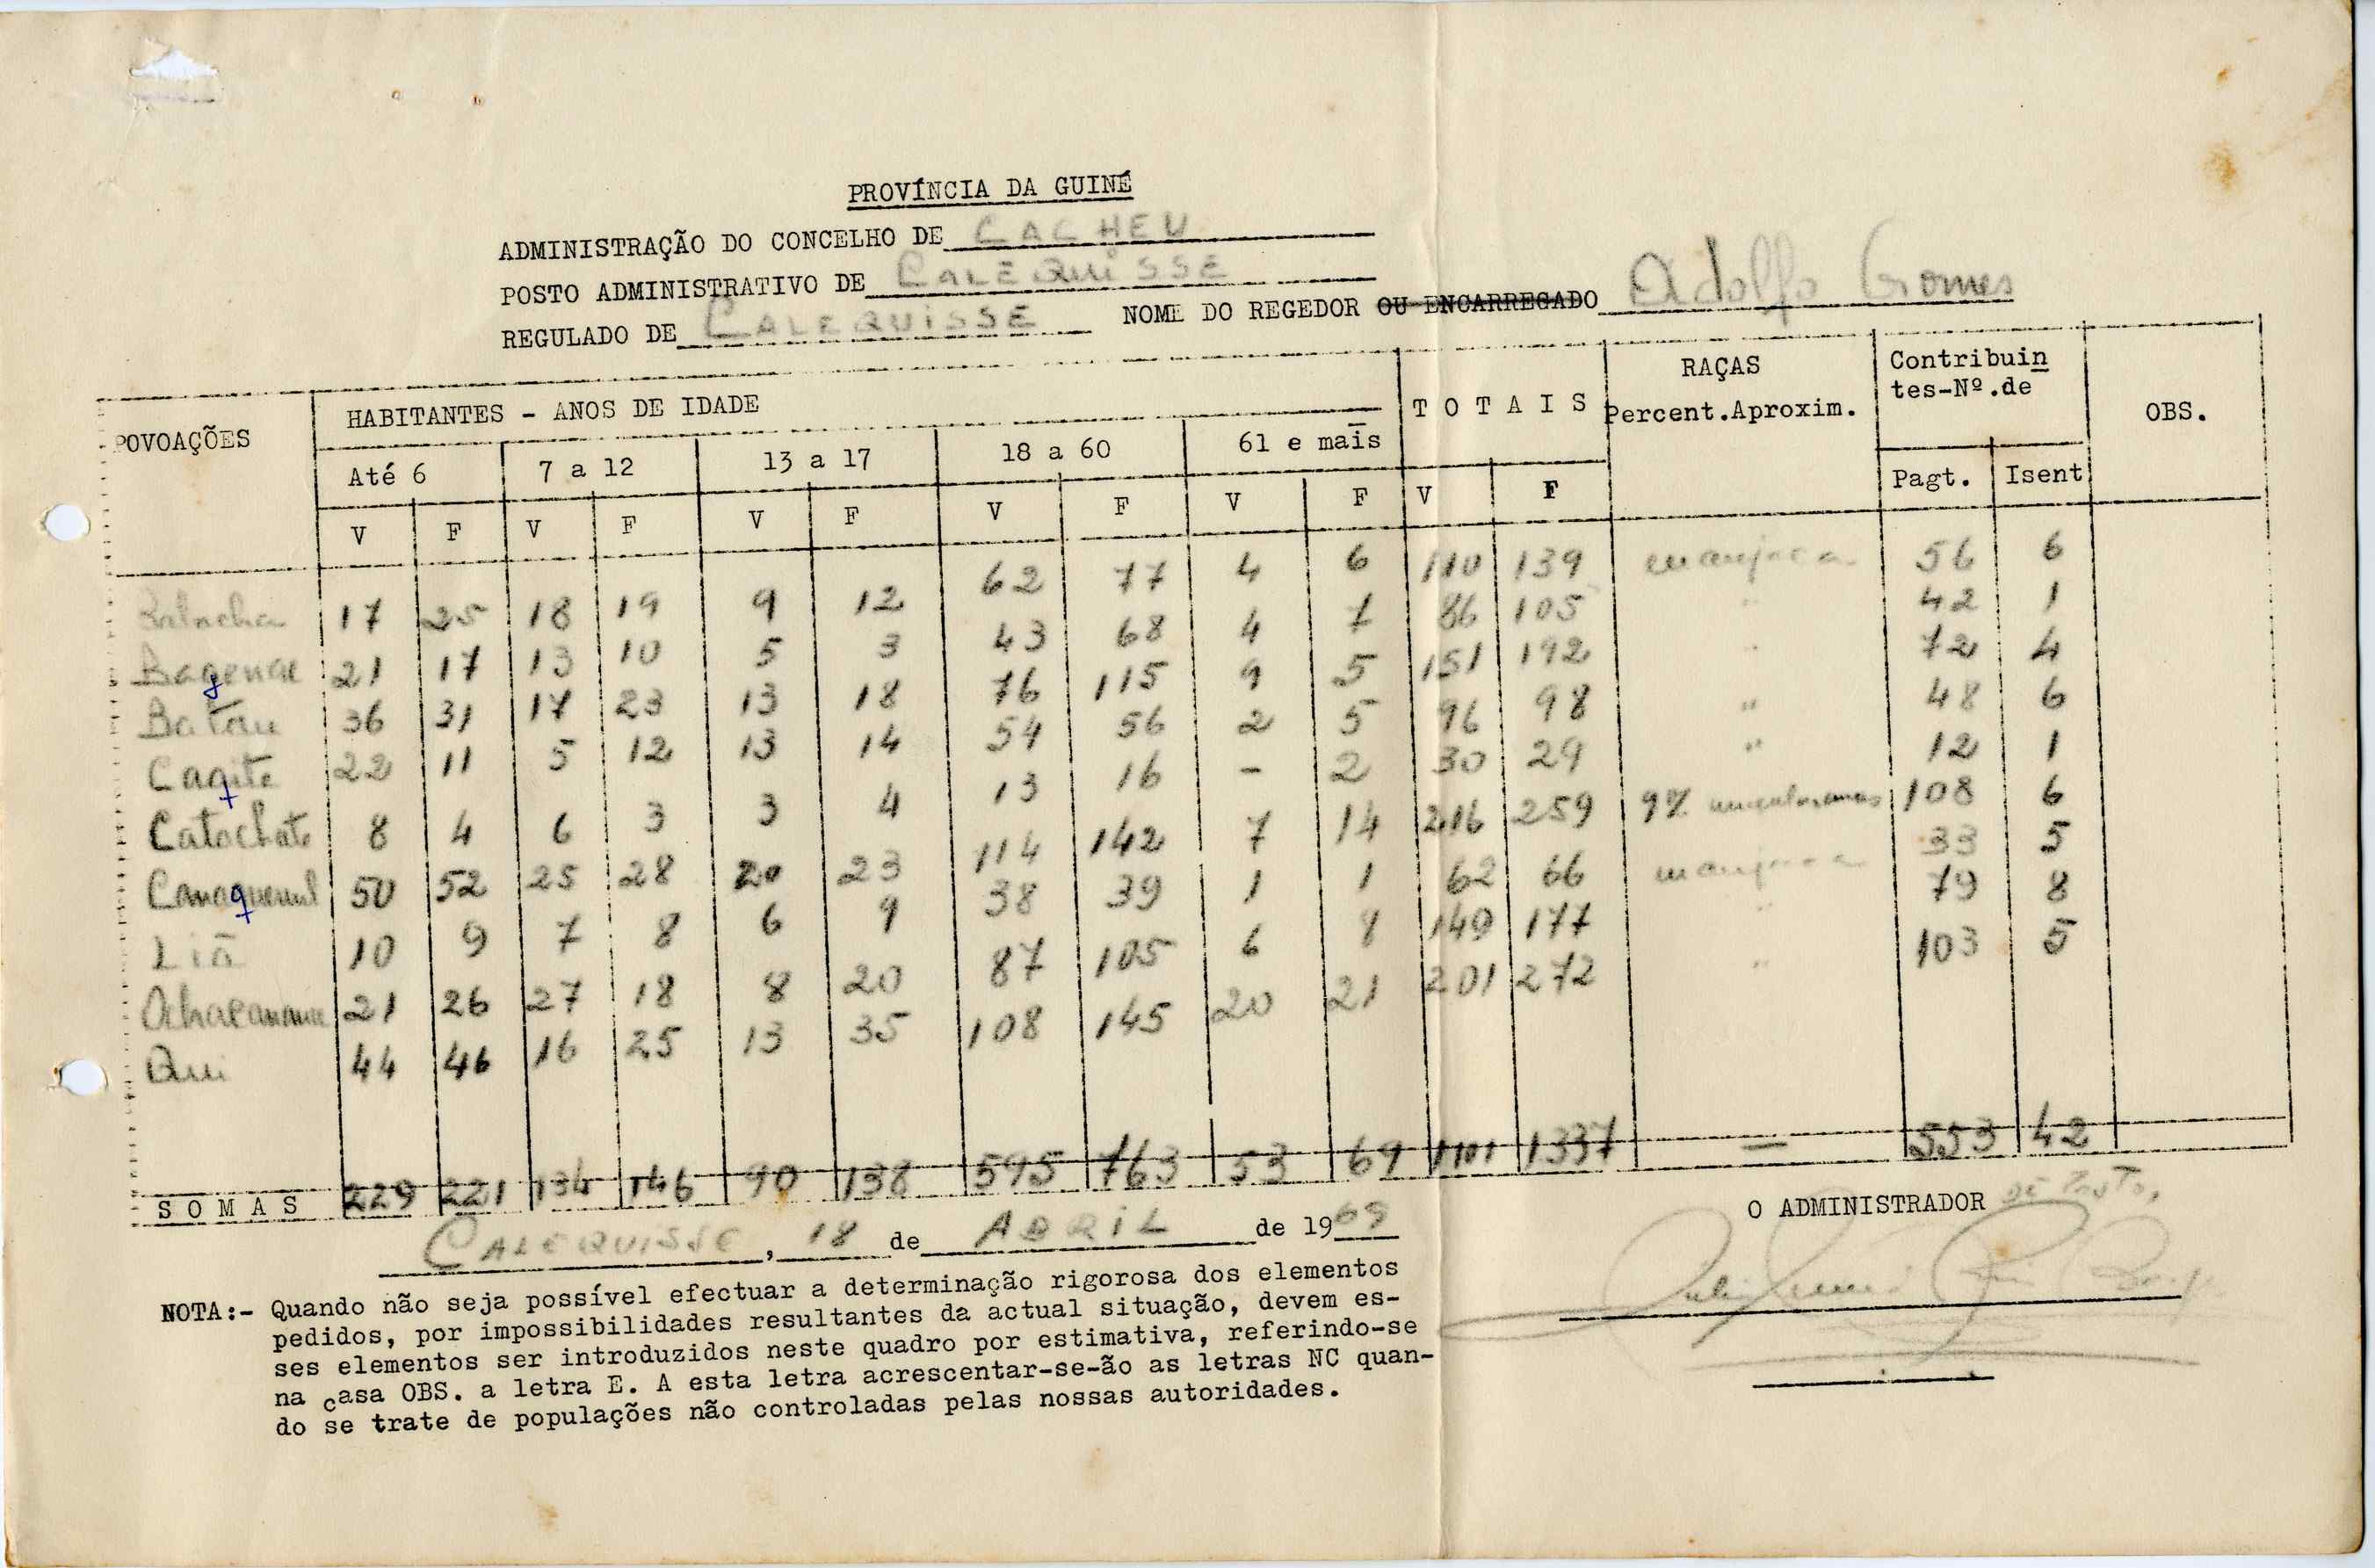 PROVÍNCIA DA GUINÉ
ADMINISTRAÇÃO DO CONCELHO DE CACHEU
POSTO ADMINISTRATIVO DE CALEQUISSE
REGULADO DE CALEQUISSE NOME DO REGEDOR OU ENCARREGADO Adolfo Gomes
POVOAÇÕES HABITANTES - ANOS DE IDADE TOTAIS RAÇAS Percent.Aproxim. Contribuin tes-Nº.de OBS.
Até 6 7 a 12 13 a 17 18 a 60 61 e mais Pagt. Isent
V F V F V F V F V F V F
17 25 18 19 9 12 62 77 4 6 110 139 manjaca 56 6
Bagenae 21 17 13 10 5 3 43 68 4 7 86 105 " 42 1
Batau 36 31 17 23 13 18 76 115 9 5 151 192 " 72 4
Caqite 22 11 5 12 13 14 54 56 2 5 96 98 " 48 6
Catochate 8 4 6 3 3 4 13 16 - 2 30 29 " 12 1
50 52 25 28 20 23 114 142 7 14 216 259 9% 108 6
Liã 10 9 7 8 6 9 38 39 1 1 62 66 manjaca 33 5
21 26 27 18 8 20 87 105 6 8 149 177 " 79 8
Qui 44 46 16 25 13 35 108 145 20 21 201 272 " 103 5
SOMAS 229 221 134 146 90 138 595 763 53 69 1101 1337 — 553 42
CALEQUISSE, 18 de ABRIL de 1969
O ADMINISTRADOR DE POSTO,
NOTA:- Quando não seja possível efectuar a determinação rigorosa dos elementos
pedidos, por impossibilidades resultantes da actual situação, devem es-
ses elementos ser introduzidos neste quadro por estimativa, referindo-se
na casa OBS. a letra E. A esta letra acrescentar-se-ão as letras NC quan-
do se trate de populações não controladas pelas nossas autoridades.